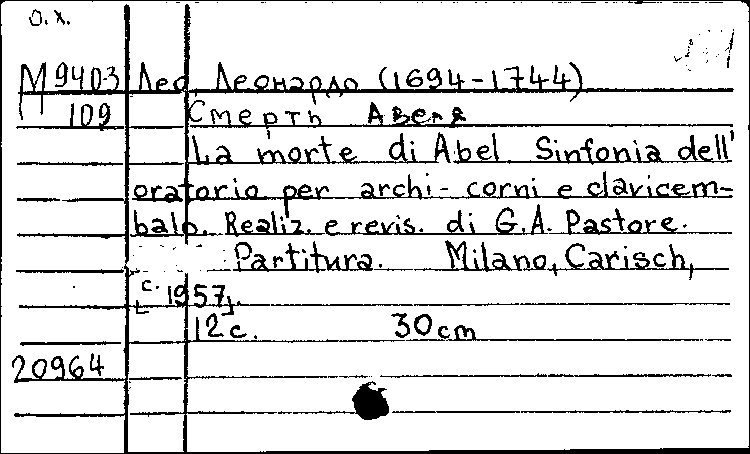 О.х.
М9403 Лео, Леонардо (1694-1744)
109 Смерть Авеля
La morte di Abel. Sinfonia dell'
oratorio per archi- corni e clavicem-
balo. Realiz. e revis. di G.A. Pastore.
Partitura. Milano, Carisch,
[c. 1957].
12 c. 30 cm
20964